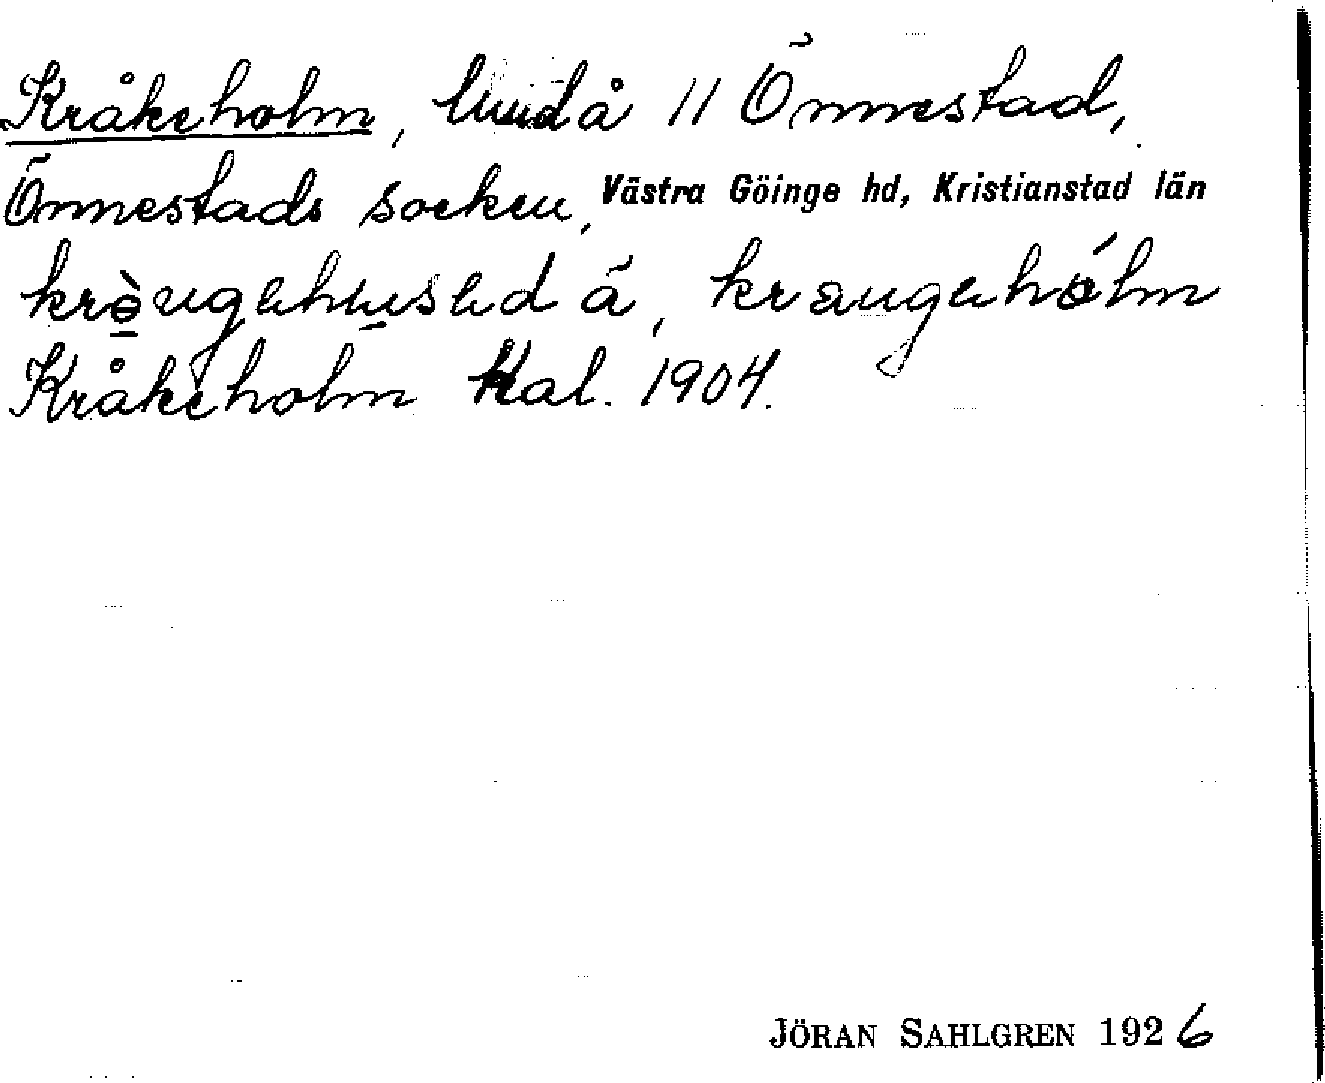 Kråkeholm, lind å 11 Önnestad,
Önnestads socken, Västra Göinge hd, Kristianstad län
krångehused å, kraugehólm
Kråkeholm Kal. 1904.
JÖRAN SAHLGREN 1926